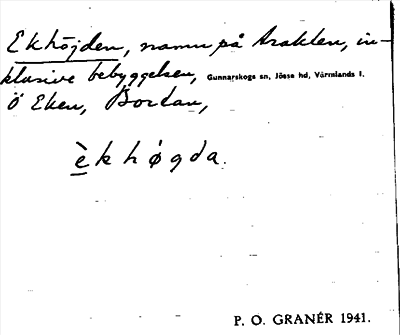 Ekhöjden, namn på trakten, in-
klusive bebyggelsen, Gunnarskogs sn, Jösse hd, Värmlands l.
Ö Eken, Bordan,
èkhøgda.
P. O. GRANÉR 1941.